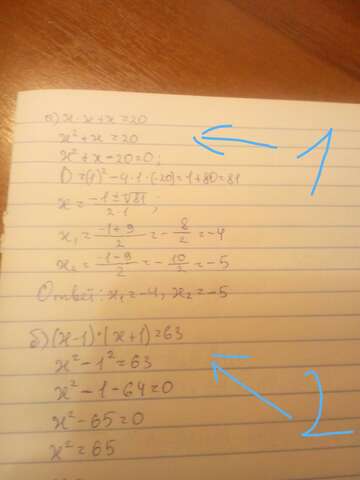 а) x·x+x=20
x²+x=20
x²+x-20=0;
D=(1)²-4·1·(-20)=1+80=81
x=\frac{-1±√81}{2·1};
x₁=\frac{-1+9}{2}=-\frac{8}{2}=-4
x₂=\frac{-1-9}{2}=-\frac{10}{2}=-5
Ответ: x₁=-4, x₂=-5
1
б) (x-1)·(x+1)=63
x²-1²=63
x²-1-64=0
x²-65=0
x²=65
2